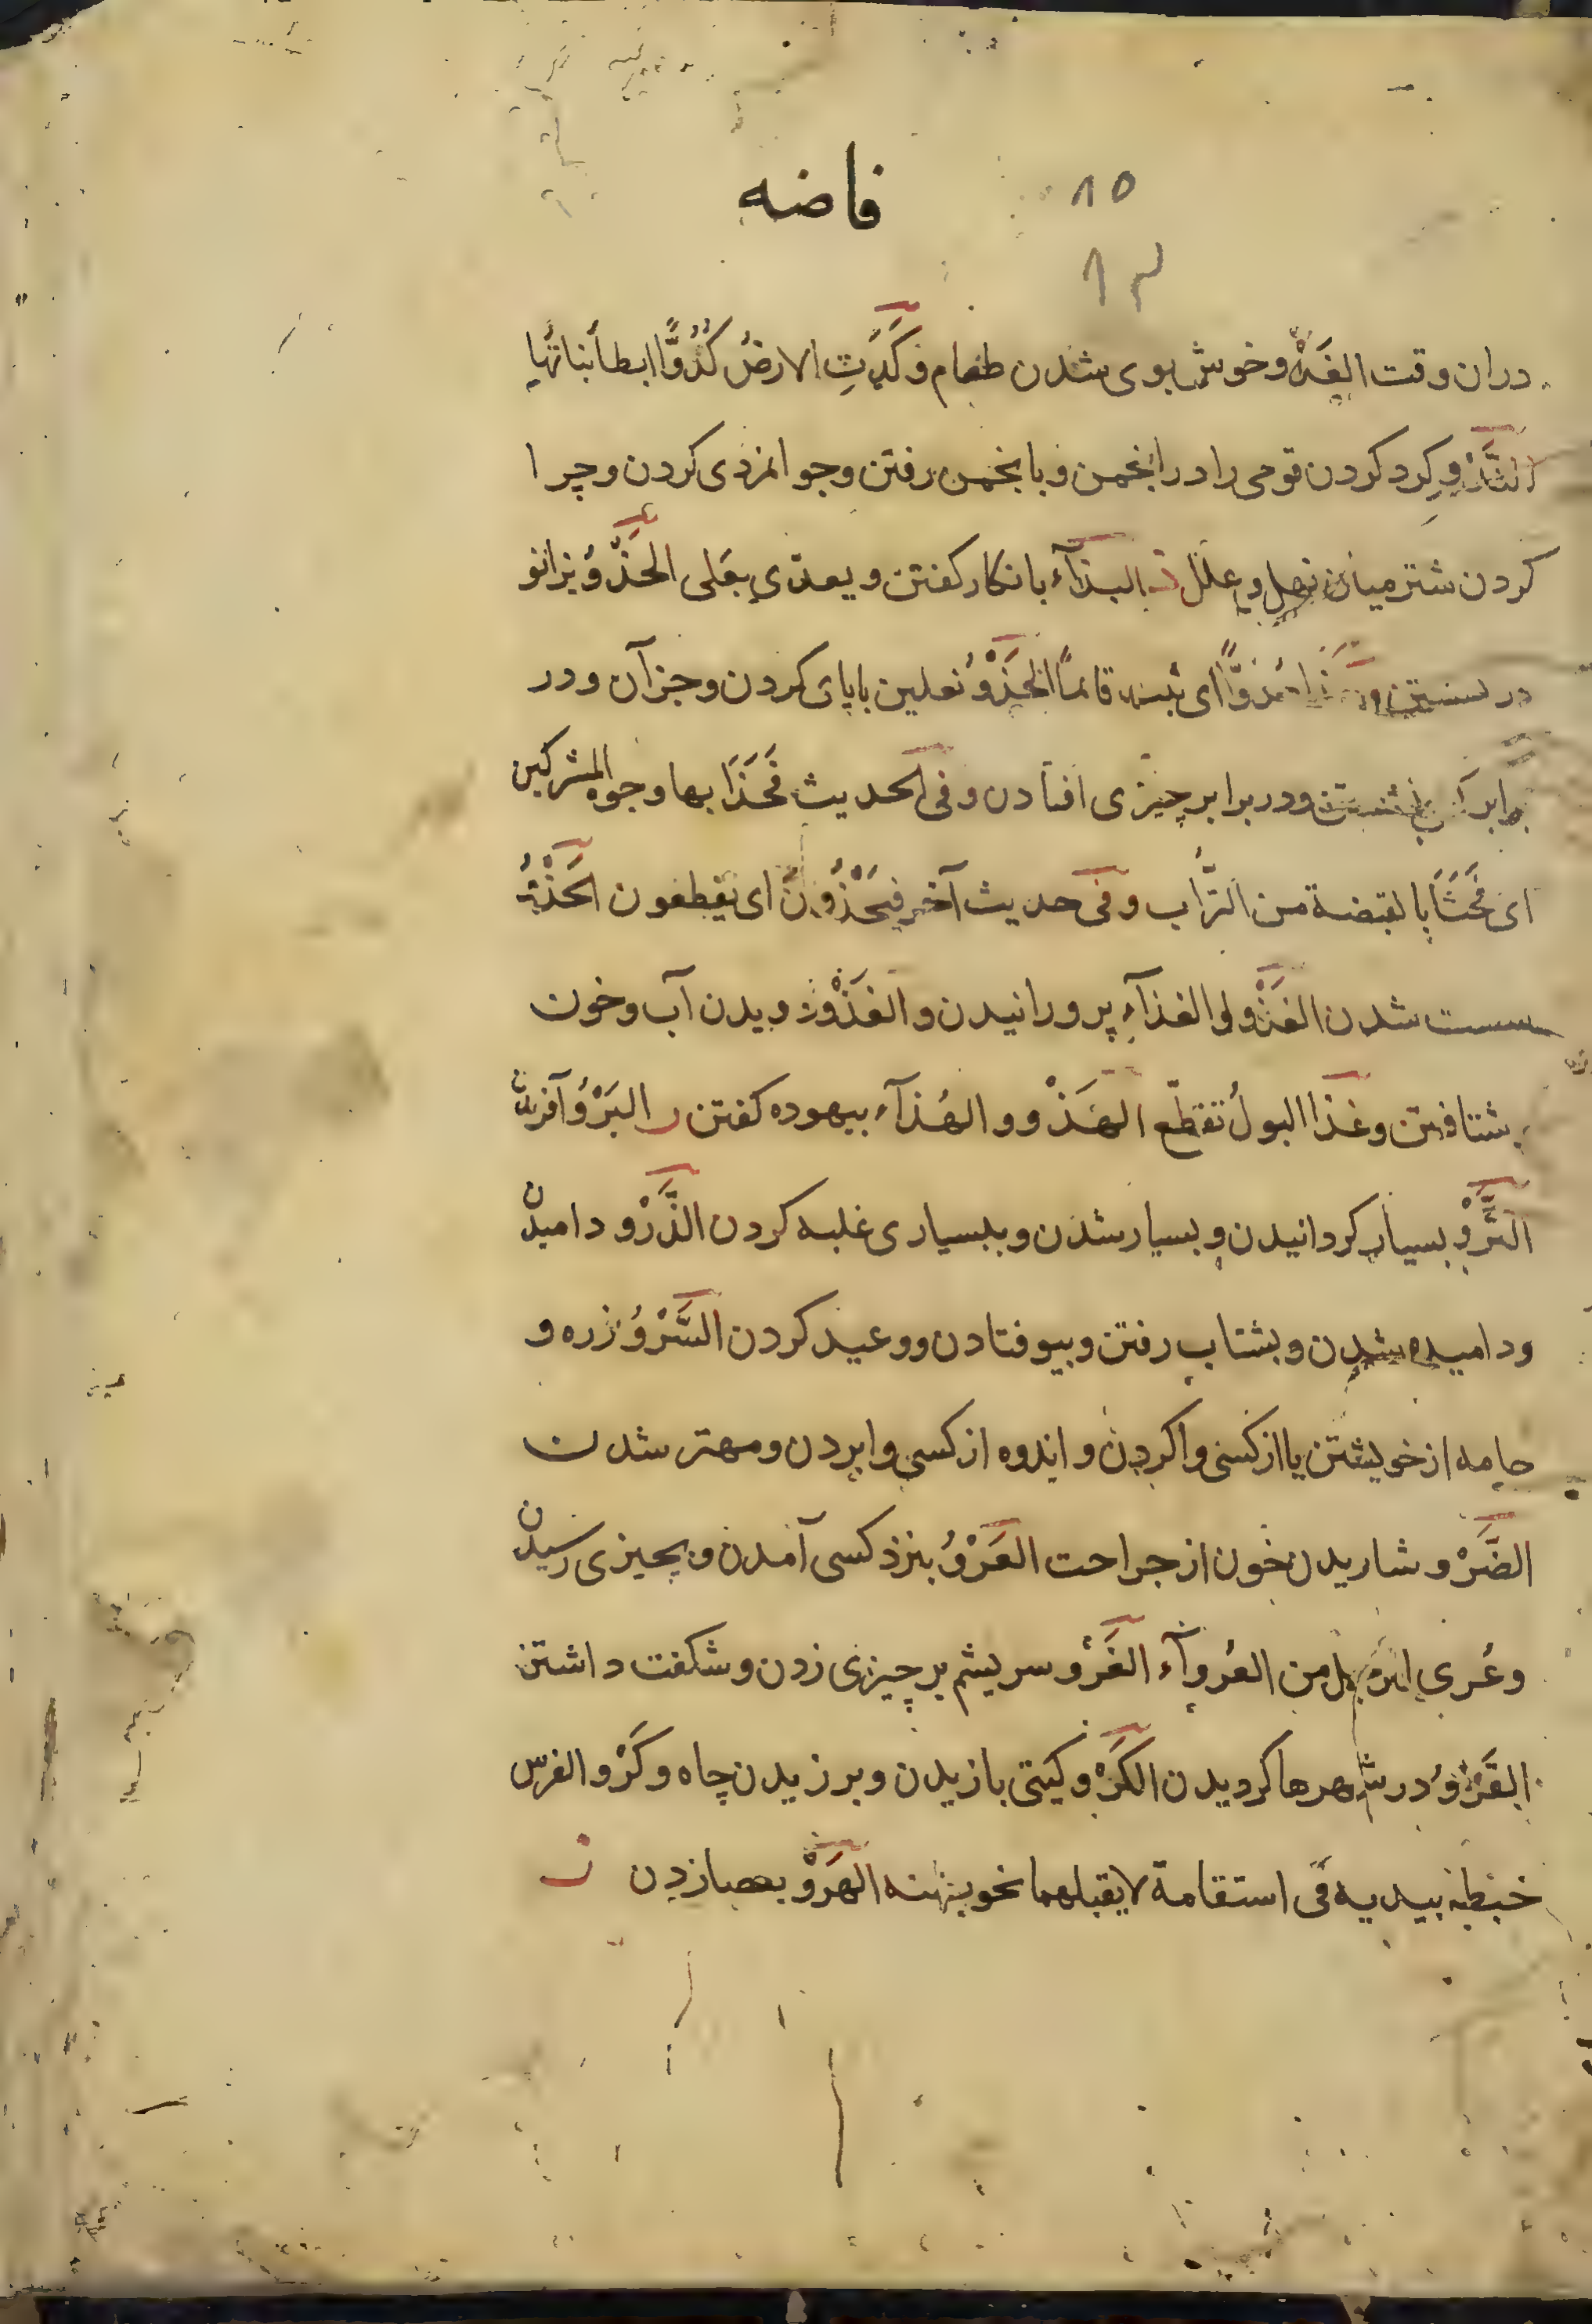 ۸۵
فاضه
۸۳
دران وقت الفَدْو خوش بوی شدن طعام وَكَدَتِ الارضُ كُدُوًّا ابطأ نباتُها
النَّدْو كِرد كردن قومی را در انجمن و بانجمن رفتن و جوانمردی كردن و چرا
كردن شتر میان نهل و علل ذ البذآء بانكار كفتن و یعدّی بعَلی الحَذْوُ بزانو
در نشستن ای ثبت قائمًا الحَذْوُ نعلین باپای كردن و جز آن و در
برابر كسی نشستن و در برابر چیزی افتادن و فی الحدیث فَحَذَا بها وجوه المشركین
ای فَحَثَا بالقبضة من التُّراب و فی حدیث آخر فیَحْذُونَ ای یقطعون الخَذْوُ
سست شدن الغَذْو و الغذآء پرورانیدن و الغَذْو دویدن آب و خون
بشتافتن و غذا البولُ تقطّع الهَذْو و الهُذآء بیهوده كفتن ر البَرْوُ آفریدن
الثَّرْوُ بسیار كردانیدن و بسیار شدن و ببسیاری غلبه كردن الذَّرْو دامیدن
و دامیده شدن و بشتاب رفتن و بیوفتادن و وعید كردن السَّرْوُ زره و
جامه از خویشتن یا از كسی واكردن و اندوه از كسی وابردن و مهتر شدن
الضَّرْو شاریدن خون از جراحت العَرْوُ بنزد كسی آمدن و بچیزی رسیدن
و عُری الرجل من العُروآء الغَرْو سریشم بر چیزی زدن و شكفت داشتن
القَرْوُ در شهرها كردیدن الكَرْو كیتی بازیدن و برزیدن چاه و كَرْو الفرس
خبطه بیدیه فی استقامة لا یقبلهما نحو بطنه الهَرْو بعصا زدن ز